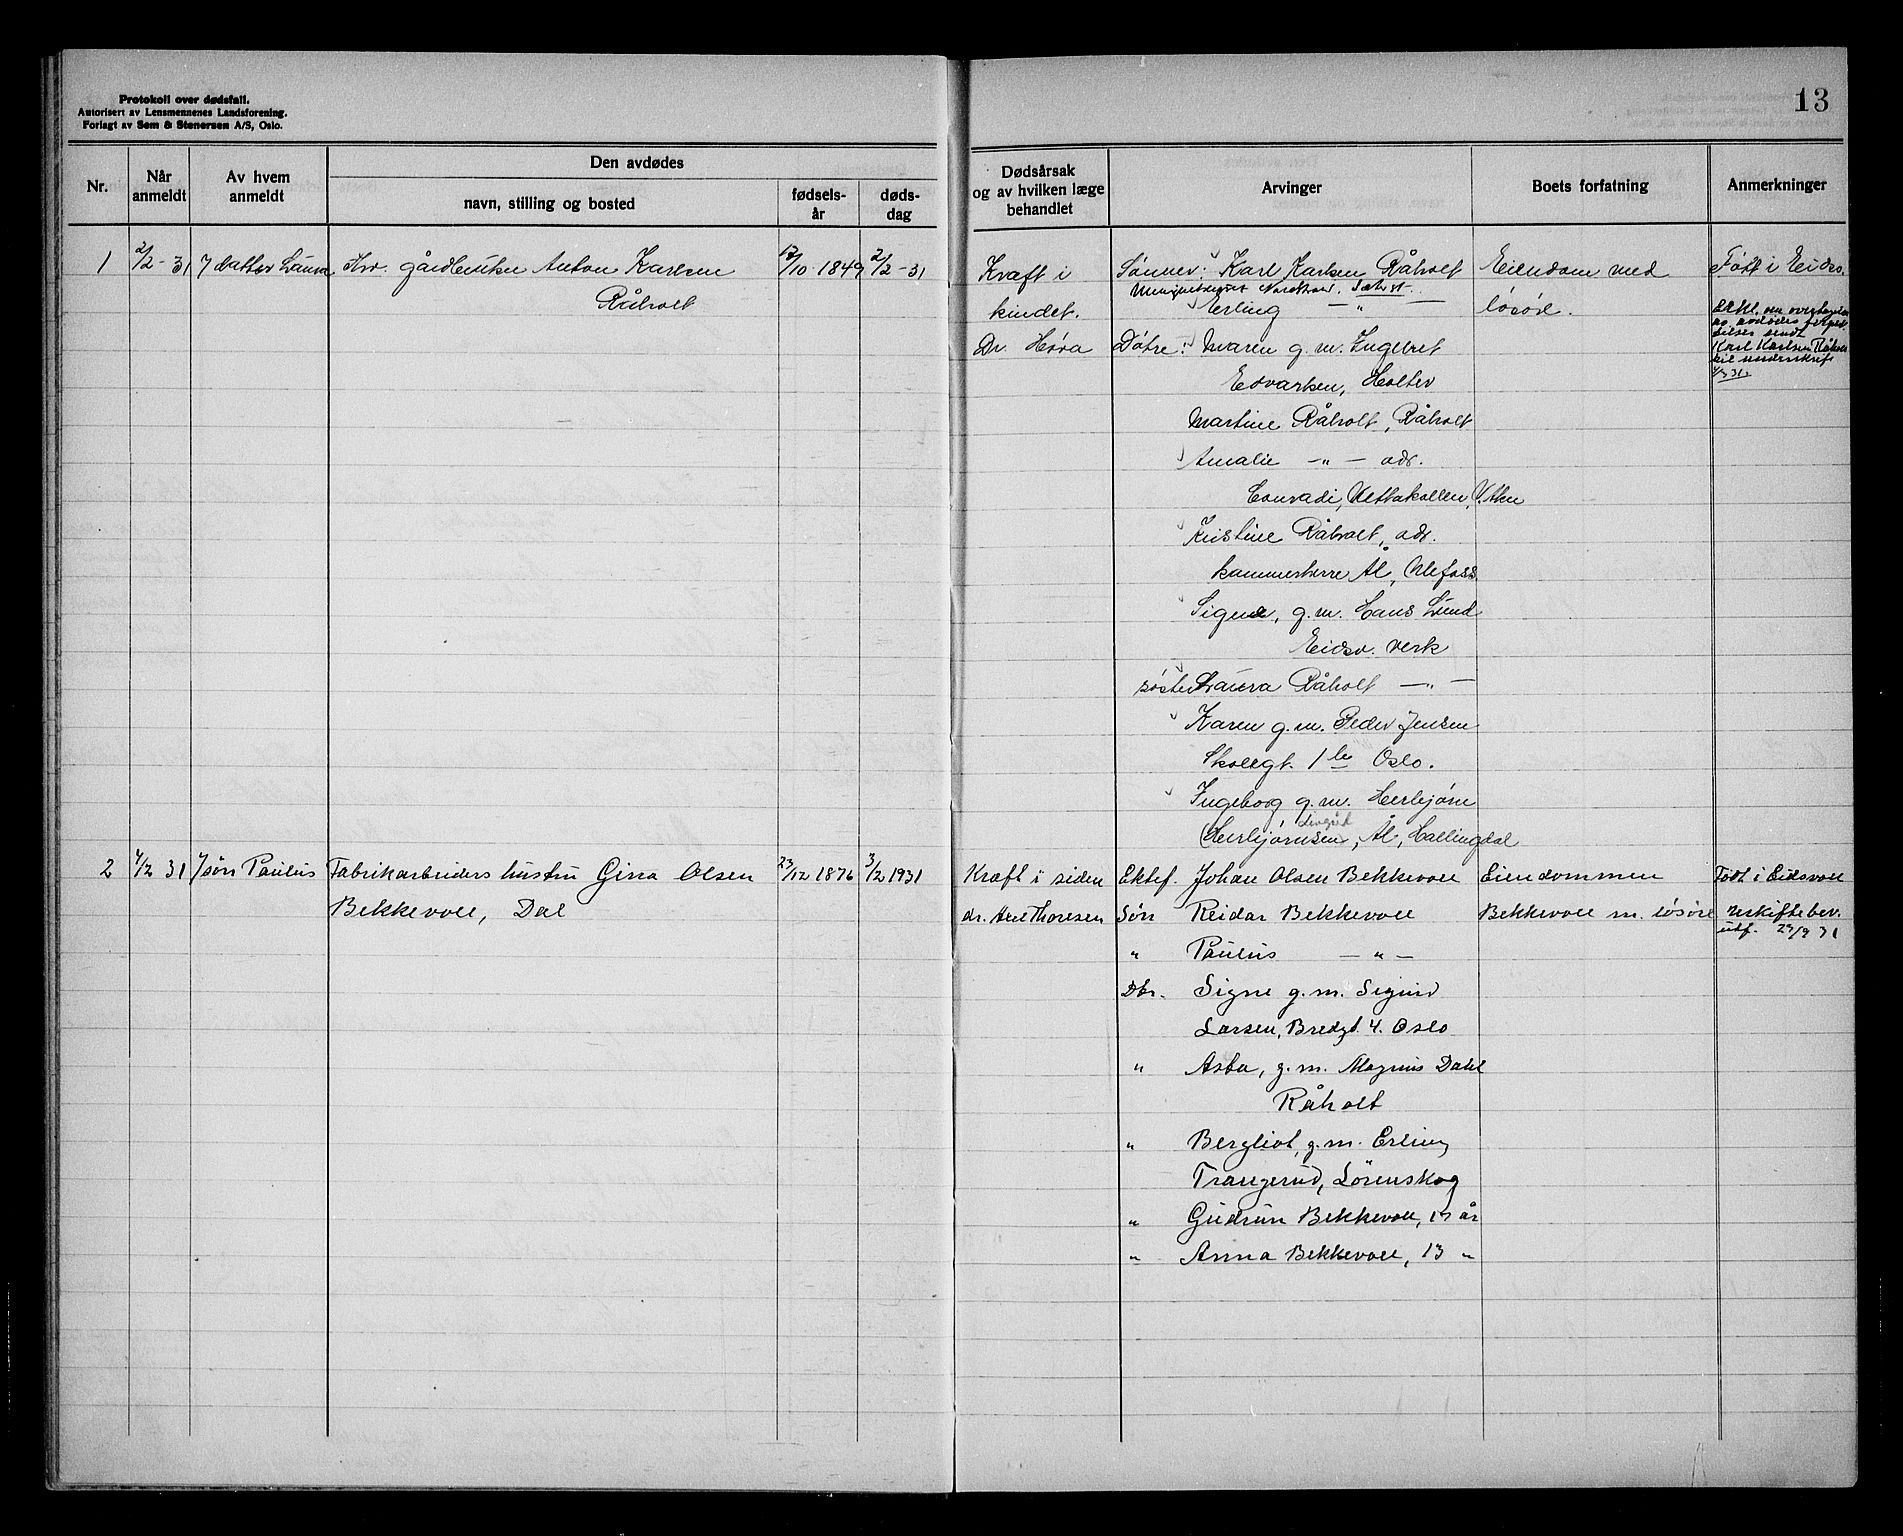 Protokoll over dødsfall.
Autorisert av Lensmennenes Landsforening.
Forlagt av Sem & Stenersen A/S, Oslo.
13
Nr.
Når anmeldt
Av hvem anmeldt
Den avdødes
navn, stilling og bosted
fødsels-år
døds-dag
Dødsårsak og av hvilken læge behandlet
Arvinger
Boets forfatning
Anmerkninger
1 2/2 - 31 datter Laura Anton Karlsen 12/10 1849 2/2 - 31 Kræft i Sønner: Karl Karlsen Råholt Eiendom med Født i Eidsv.
Råholt kindet. Erling — " — løsøre.
Dr. Høva Døtre: Maren g.m. Ingebret Karl Karlsen Råholt
Edvardsen, Holter
Martine Råholt, Råholt
Amalie — " — adr.
Conradi, Vettakollen, V. Aker
Kristine Råholt, adr.
kammerherre Ål, Ulefoss
Signe, g.m. Hans Lund
Eidsv. verk
Laura Råholt — " —
Karen g.m. Peder Jensen
Skolegt. 1 Oslo.
Ingeborg g.m. Herbjørn
Herbjørnsen, Ål, Hallingdal
2 4/2 31 søn Paulus Fabrikarbeiders hustru Gina Olsen 23/12 1876 3/2 1931 Kræft i siden Ektef. Johan Olsen Bekkevoll Eiendommen Født i Eidsvoll
Bekkevoll, Dal dr. Thoresen Søn Reidar Bekkevoll Bekkevoll m. løsøre Uskiftebev.
utf. 23/9 31
" Paulus — " —
Dtr. Signe g.m. Sigurd
Larsen, Bredgt. 4. Oslo
" Asta, g.m. Magnus Dahl
Råholt
" Bergliot, g.m. Erling
Trangerud, Lørenskog
" Gudrun Bekkevoll, 17 år
" Anna Bekkevoll, 13 "